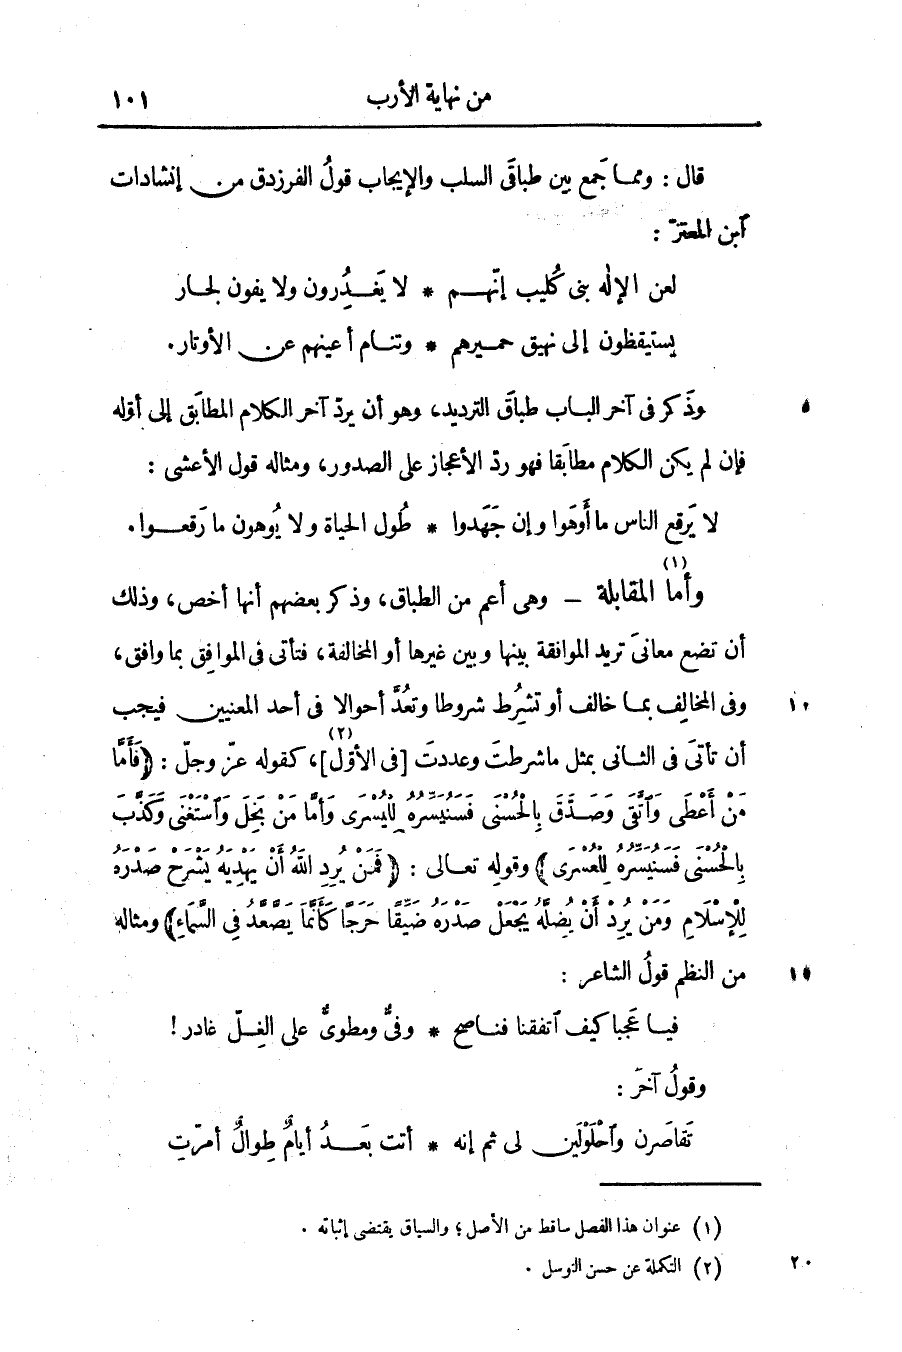 من نهاية الأرب ١٠١
قال : ومما جَمع بين طباقَى السلب والإيجاب قولُ الفرزدق من إنشادات
ٱبن المعتزّ :
لعن الإلٰه بنى كُليب إنّهم * لا يَغدِرون ولا يفون لجار
يستيقظون إلى نهيق حميرهم * وتنام أعينهم عن الأوتار.
وذَكر فى آخر الباب طباقَ الترديد، وهو أن يردّ آخر الكلام المطابَق إلى أوّله ٥
فإن لم يكن الكلام مطابَقا فهو ردّ الأعجاز على الصدور، ومثاله قول الأعشى :
لا يَرقع الناس ما أَوهَوا وإن جَهَدوا * طُول الحياة ولا يُوهون ما رَقعوا.
وأما المقابلة (١) – وهى أعم من الطباق، وذكر بعضهم أنها أخص، وذلك
أن تضع معانىَ تريد الموافقة بينها وبين غيرها أو المخالفة، فتأتى فى الموافِق بما وافق،
وفى المخالِف بما خالف أو تشرُط شروطا وتعُدّ أحوالا فى أحد المعنيين فيجب ١٠
أن تأتىَ فى الثانى بمثل ما شرطتَ وعددتَ [فى الأوّل] (٢)، كقوله عزّ وجلّ : ﴿فَأَمَّا
مَنْ أَعْطَى وَٱتَّقَى وَصَدَّقَ بِالْحُسْنَى فَسَنُيَسِّرُهُ لِلْيُسْرَى وَأَمَّا مَنْ بَخِلَ وَٱسْتَغْنَى وَكَذَّبَ
بِالْحُسْنَى فَسَنُيَسِّرُهُ لِلْعُسْرَى﴾ وقوله تعالى : ﴿فَمَنْ يُرِدِ اللهُ أَنْ يَهْدِيَهُ يَشْرَحْ صَدْرَهُ
لِلْإِسْلَامِ وَمَنْ يُرِدْ أَنْ يُضِلَّهُ يَجْعَلْ صَدْرَهُ ضَيِّقًا حَرَجًا كَأَنَّمَا يَصَّعَّدُ فِى السَّمَاءِ﴾ ومثاله
من النظم قولُ الشاعر : ١٥
فيا عَجبا كيف ٱتفقنا فناصح * وفىٌّ ومطوىٌّ على الغِلّ غادر!
وقولُ آخرَ :
تَقاصَرن وٱحْلَوْلَين لى ثم إنه * أتت بَعدُ أيامٌ طِوالٌ أمرّتِ
(١) عنوان هذا الفصل ساقط من الأصل؛ والسياق يقتضى إثباته .
(٢) التكملة عن حسن التوسل . ٢٠